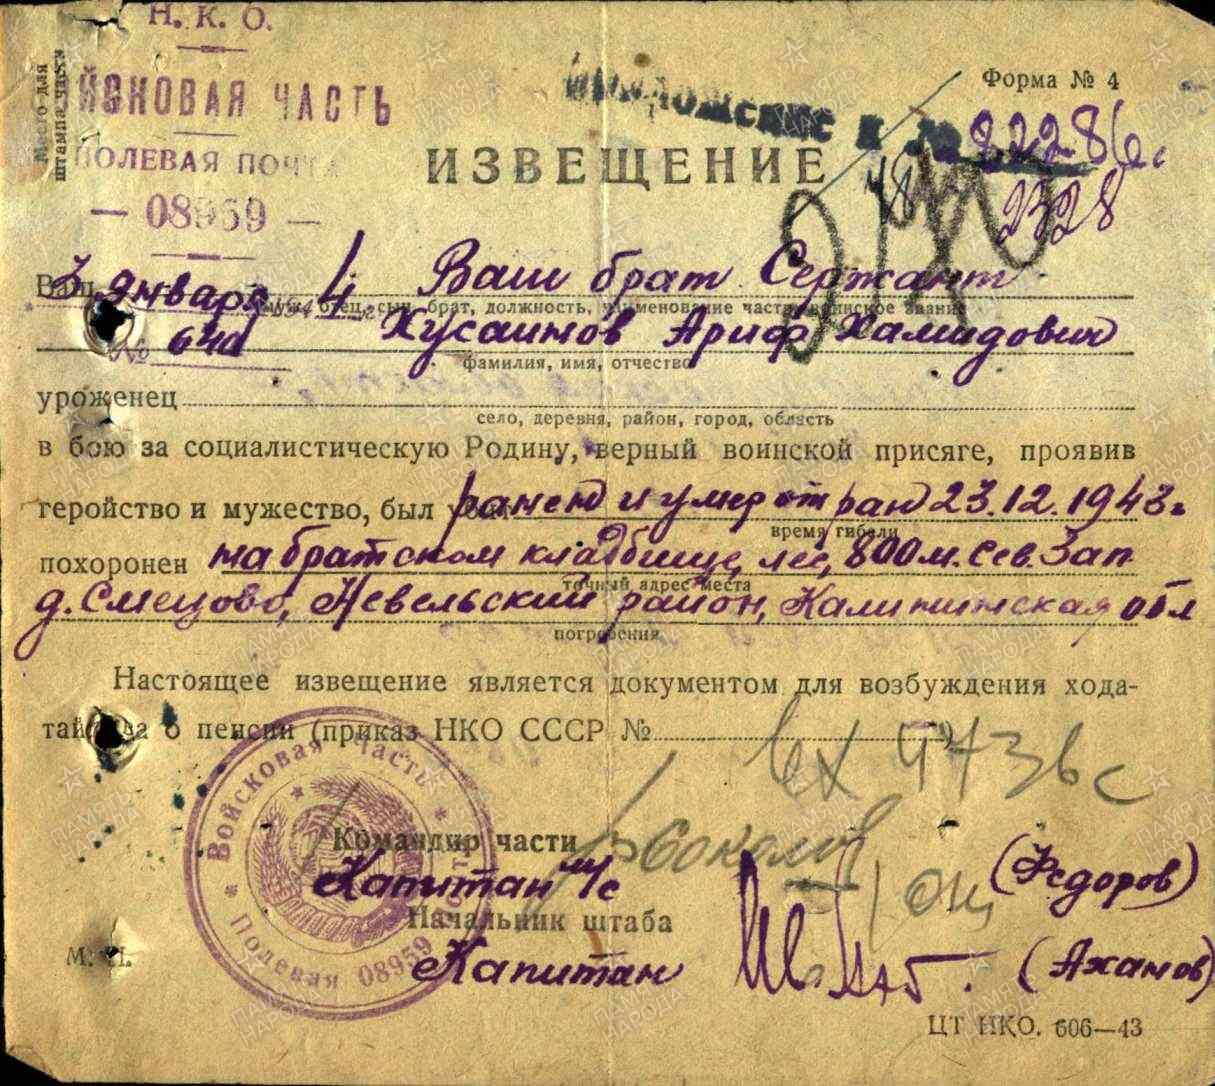 Н. К. О.
Место для
штампа части
ВОЙСКОВАЯ ЧАСТЬ
ПОЛЕВАЯ ПОЧТА
— 08959 —
Форма № 4
к №
82286с
2328
ИЗВЕЩЕНИЕ
3 января 4 Ваш брат Сержант
отец, сын, брат, должность, наименование части, воинское звание
№ Хусаинов Ариф Халидович
фамилия, имя, отчество
уроженец
село, деревня, район, город, область
в бою за социалистическую Родину, верный воинской присяге, проявив
геройство и мужество, был ранен и умер от ран 23.12.1943г
время гибели
похоронен на братском кладбище, лес, 800 м. сев. Зап
точный адрес места
д. Смецово, Невельский район, Калининская обл
погребения
Настоящее извещение является документом для возбуждения хода-
тайства о пенсии (приказ НКО СССР №
вх 9473вс
Войсковая часть * Полевая 08959
Командир части
Капитан м/с (Федоров)
Начальник штаба
Капитан (Аханов)
М. П.
ЦТ НКО. 606—43
ПАМЯТЬ НАРОДА